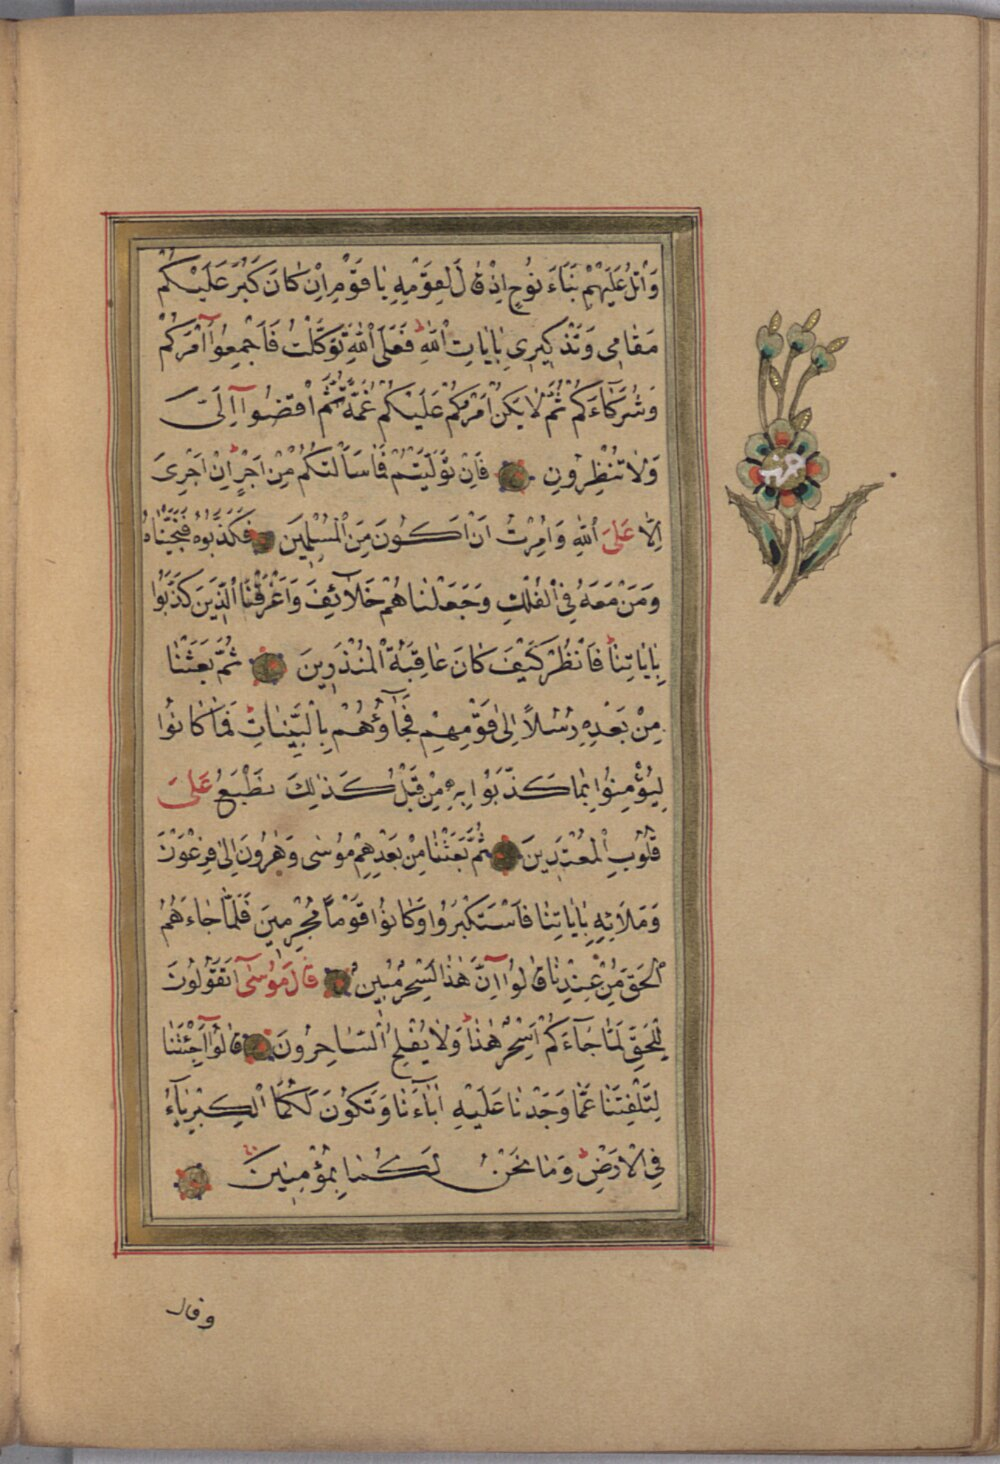 وَاتْلُ عَلَيْهِمْ نَبَاَءَ نُوحٍ اِذْ قَالَ لِقَوْمِهِ يَا قَوْمِ اِنْ كَانَ كَبُرَ عَلَيْكُمْ
مَقَامِى وَتَذْكِيرِى بِاٰيَاتِ اللّٰهِ فَعَلَى اللّٰهِ تَوَكَّلْتُ فَاَجْمِعُوا اَمْرَكُمْ
وَشُرَكَاءَكُمْ ثُمَّ لَا يَكُنْ اَمْرُكُمْ عَلَيْكُمْ غُمَّةً ثُمَّ اقْضُوا اِلَىَّ
وَلَا تُنْظِرُونِ فَاِنْ تَوَلَّيْتُمْ فَمَا سَاَلْتُكُمْ مِنْ اَجْرٍ اِنْ اَجْرِىَ
اِلَّا عَلَى اللّٰهِ وَاُمِرْتُ اَنْ اَكُونَ مِنَ الْمُسْلِمِينَ فَكَذَّبُوهُ فَنَجَّيْنَاهُ
وَمَنْ مَعَهُ فِى الْفُلْكِ وَجَعَلْنَاهُمْ خَلَائِفَ وَاَغْرَقْنَا الَّذِينَ كَذَّبُوا
بِاٰيَاتِنَا فَانْظُرْ كَيْفَ كَانَ عَاقِبَةُ الْمُنْذَرِينَ ثُمَّ بَعَثْنَا
مِنْ بَعْدِهِ رُسُلًا اِلٰى قَوْمِهِمْ فَجَاؤُهُمْ بِالْبَيِّنَاتِ فَمَا كَانُوا
لِيُؤْمِنُوا بِمَا كَذَّبُوا بِهِ مِنْ قَبْلُ كَذٰلِكَ نَطْبَعُ عَلٰى
قُلُوبِ الْمُعْتَدِينَ ثُمَّ بَعَثْنَا مِنْ بَعْدِهِمْ مُوسٰى وَهٰرُونَ اِلٰى فِرْعَوْنَ
وَمَلَائِهِ بِاٰيَاتِنَا فَاسْتَكْبَرُوا وَكَانُوا قَوْمًا مُجْرِمِينَ فَلَمَّا جَاءَهُمُ
الْحَقُّ مِنْ عِنْدِنَا قَالُوا اِنَّ هٰذَا لَسِحْرٌ مُبِينٌ قَالَ مُوسٰى اَتَقُولُونَ
لِلْحَقِّ لَمَّا جَاءَكُمْ اَسِحْرٌ هٰذَا وَلَا يُفْلِحُ السَّاحِرُونَ قَالُوا اَجِئْتَنَا
لِتَلْفِتَنَا عَمَّا وَجَدْنَا عَلَيْهِ اٰبَاءَنَا وَتَكُونَ لَكُمَا الْكِبْرِيَاءُ
فِى الْاَرْضِ وَمَا نَحْنُ لَكُمَا بِمُؤْمِنِينَ
وقال